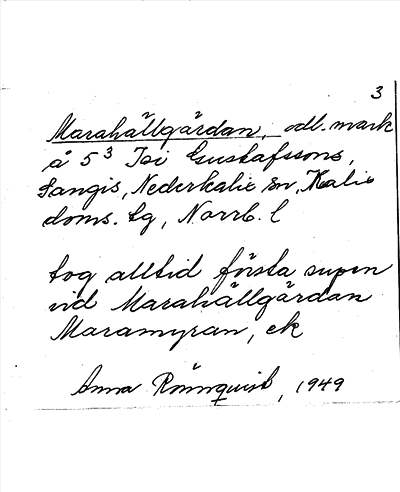 3
Marahällgärdan, odl. mark
å 5³ Gustafssons,
Sangis, Nederkalix sn, Kalix
doms. tg, Norrb. l
tog alltid första supen
vid Marahällgärdan
Maramyran, ek
Anna Rönnquist, 1949